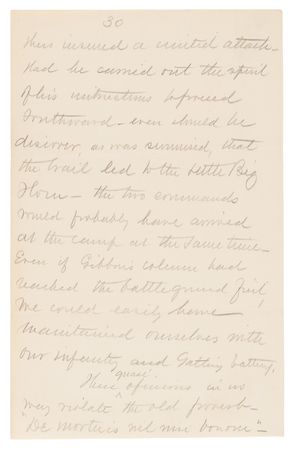 30
thus insured a united attack.
Had he carried out the spirit
of his instructions & pressed
Southward - even should he
discover, as was surmised, that
the trail led to the Little Big
Horn - the two commands
would probably have arrived
at the camp at the same time -
Even if Gibbon's column had
reached the battleground first,
we could easily have
maintained ourselves with
our infantry, and Gatling battery,
These opinions in no
way violate the old proverb -
"De mortuis nil nisi bonum" -